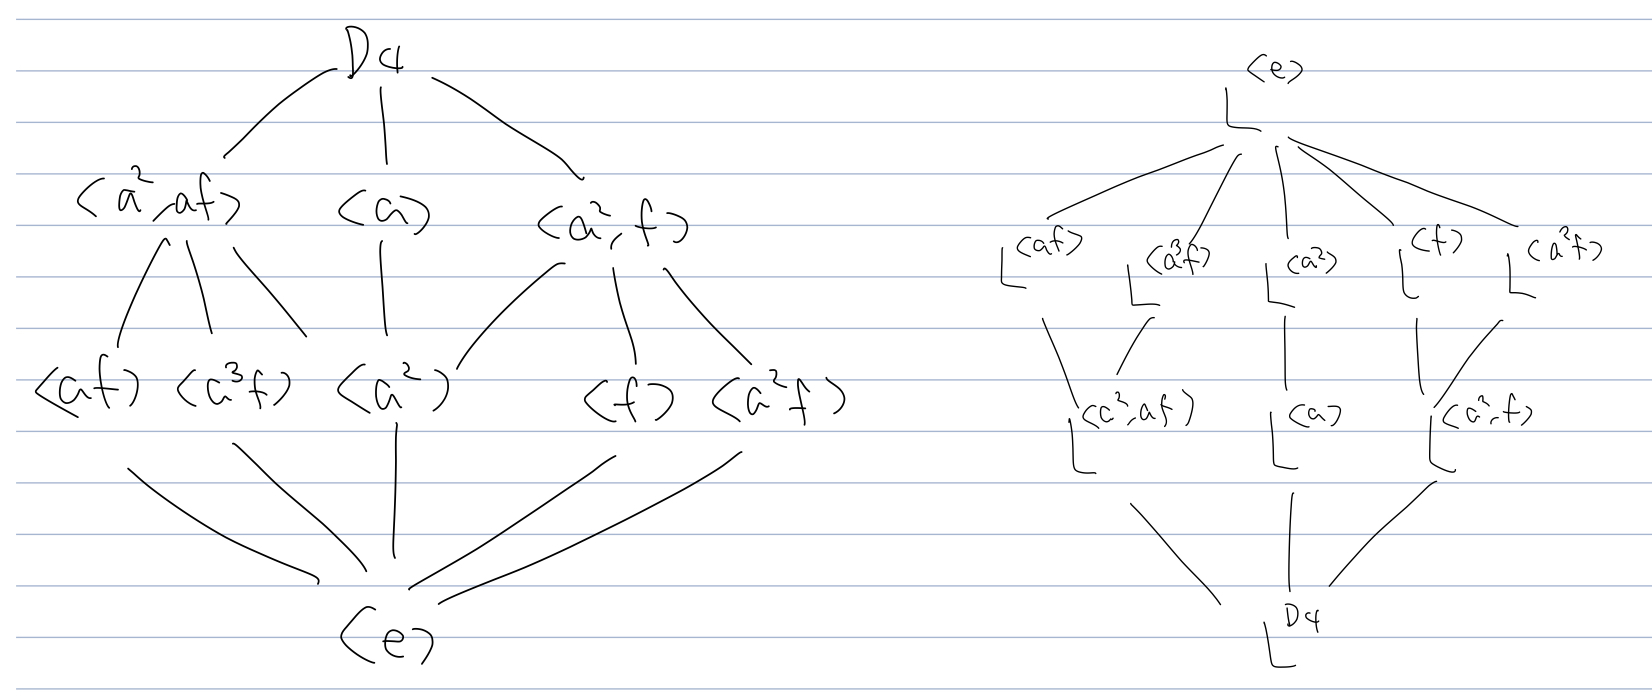 D4
<a²,af> <a> <a²,f>
<af> <a³f> <a²> <f> <a²f>
<e>
L<e>
L<af> L<a³f> L<a²> L<f> L<a²f>
L<a²,af> L<a> L<a²,f>
LD4